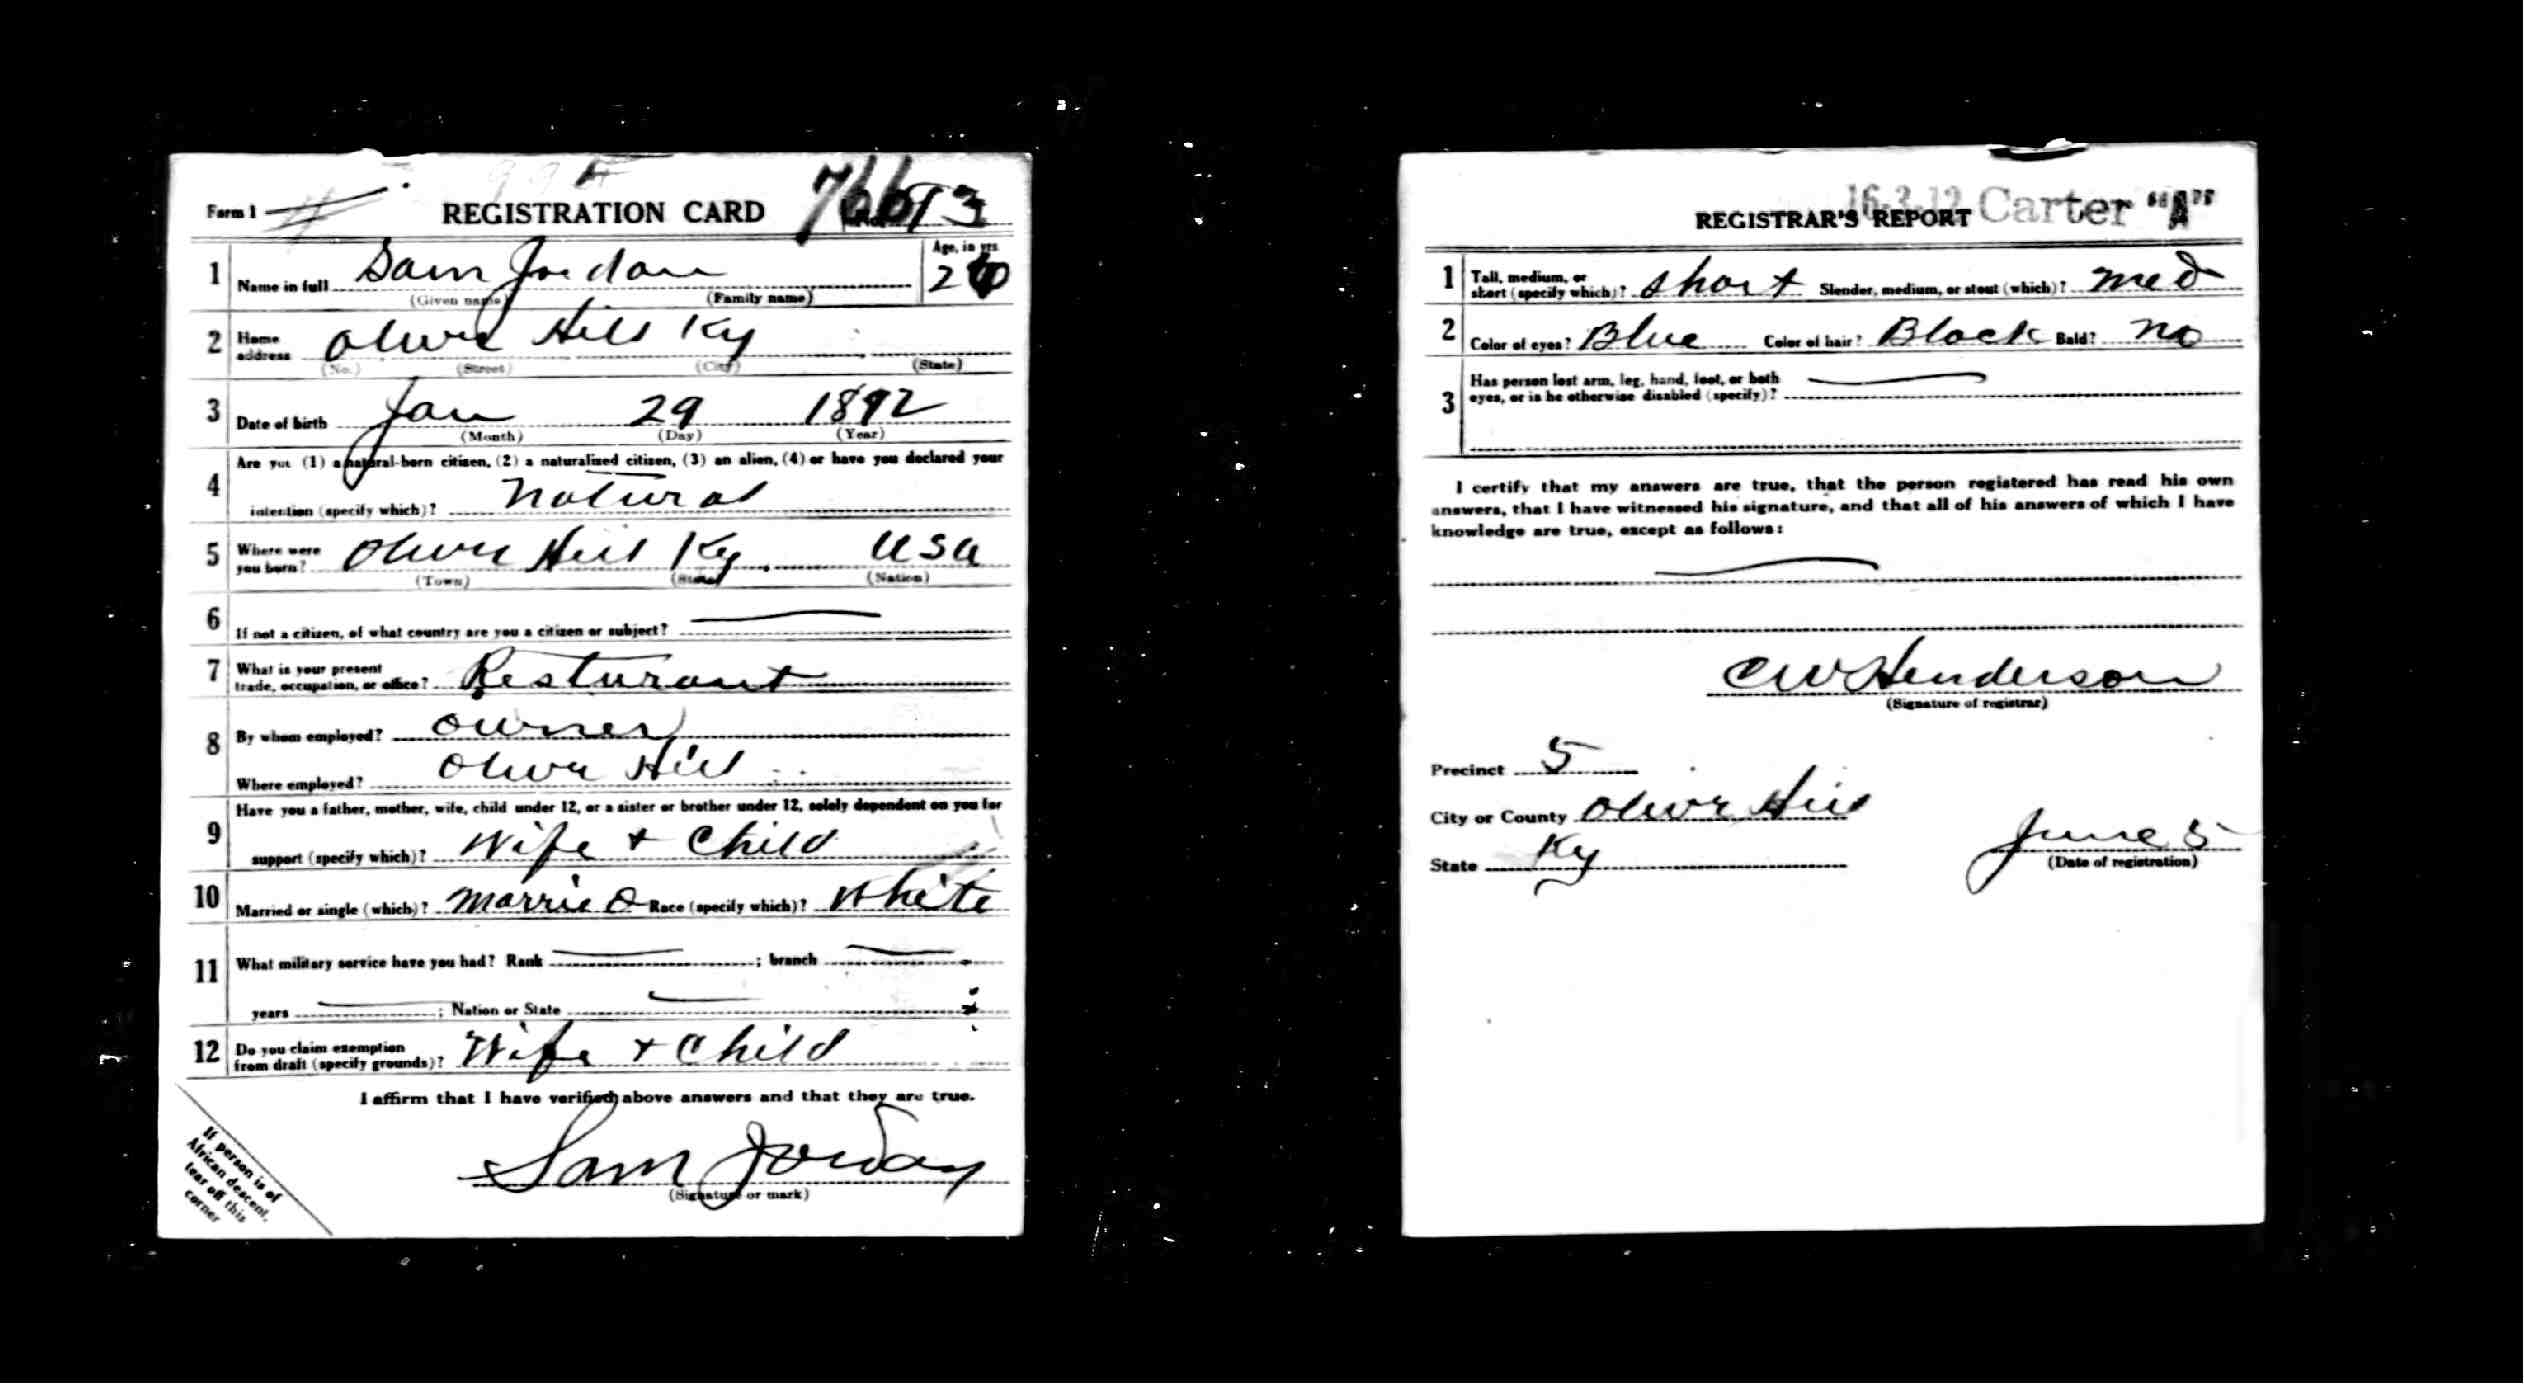 Form 1
REGISTRATION CARD
766 73
1 Name in full Sam Jordan Age, in yrs
(Given name) (Family name)
2 Home address Olive Hill Ky
(No.) (Street) (City) (State)
3 Date of birth Jan 29 1892
(Month) (Day) (Year)
4 Are you (1) a natural-born citizen, (2) a naturalized citizen, (3) an alien, (4) or have you declared your
intention (specify which)? Natural
5 Where were you born? Olive Hill Ky. USA
(Town) (State) (Nation)
6 If not a citizen, of what country are you a citizen or subject?
7 What is your present trade, occupation, or office? Resturant
8 By whom employed? owner
Where employed? Olive Hill
9 Have you a father, mother, wife, child under 12, or a sister or brother under 12, solely dependent on you for
support (specify which)? Wife + Child
10 Married or single (which)? Married Race (specify which)? White
11 What military service have you had? Rank ; branch
years ; Nation or State
12 Do you claim exemption from draft (specify grounds)? Wife + Child
I affirm that I have verified above answers and that they are true.
Sam Jordan
(Signature or mark)
If person is of
African descent,
tear off this
corner
16-3-12 Carter "A"
REGISTRAR'S REPORT
1 Tall, medium, or short (specify which)? Short Slender, medium, or stout (which)? med
2 Color of eyes? Blue Color of hair? Black Bald? no
3 Has person lost arm, leg, hand, foot, or both
eyes, or is he otherwise disabled (specify)?
I certify that my answers are true, that the person registered has read his own
answers, that I have witnessed his signature, and that all of his answers of which I have
knowledge are true, except as follows:
CW Henderson
(Signature of registrar)
Precinct 5
City or County Olive Hill
State Ky
June 5
(Date of registration)